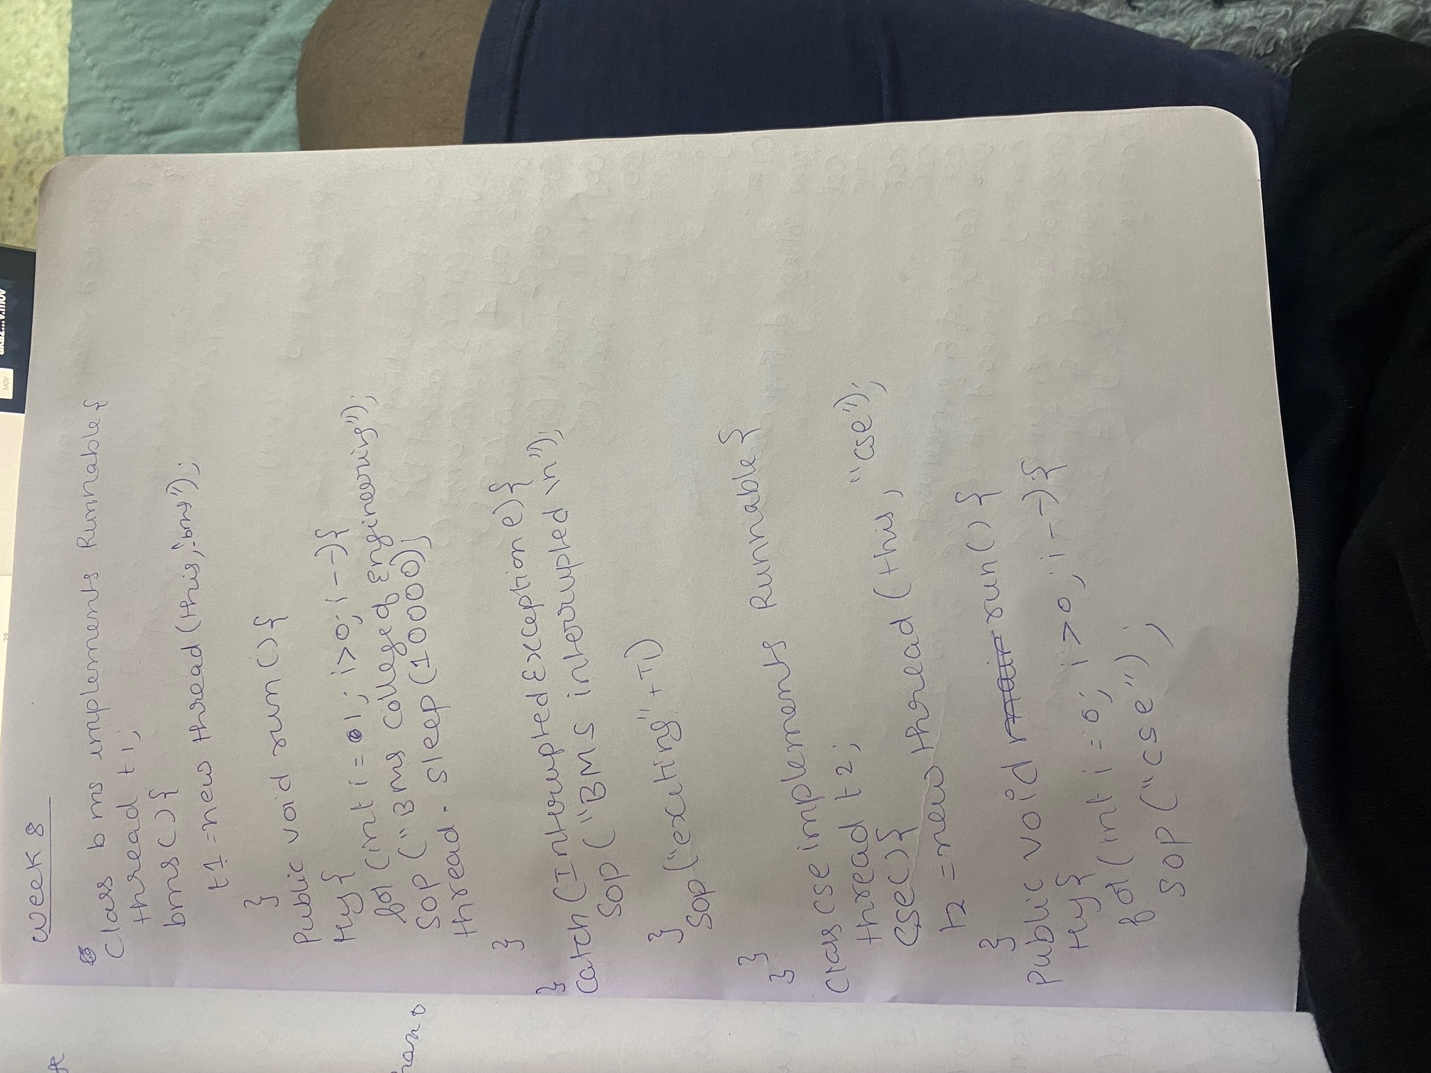 week 8
Class bms implements Runnable{
thread t1;
bms(){
t1=new thread(this,"bms");
}
public void run(){
try{
for(int i=01; i>0; i--){
SOP("Bms College of Engineering");
thread.sleep(10000);
}
}
catch(InterruptedException e){
SOP("BMS interrupted \n");
}
SOP("exciting"+T1)
}
}
class cse implements Runnable{
thread t2;
cse(){
t2=new thread(this, "cse");
}
public void main run(){
try{
for(int i=0; i>0; i--){
SOP("cse");